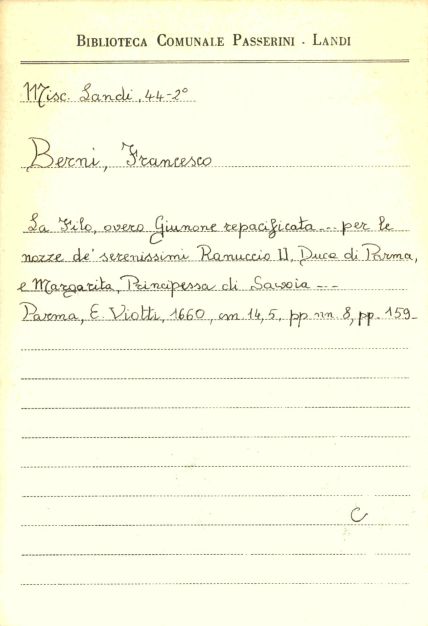 BIBLIOTECA COMUNALE PASSERINI - LANDI
Misc. Landi, 44-2°
Berni, Francesco
La Filo, overo Giunone repacificata --- per le
nozze de' serenissimi Ranuccio II, Duca di Parma,
e Margarita, Principessa di Savoia ---
Parma, E. Viotti, 1660, cm. 14,5, pp. nn. 8, pp. 159-
C